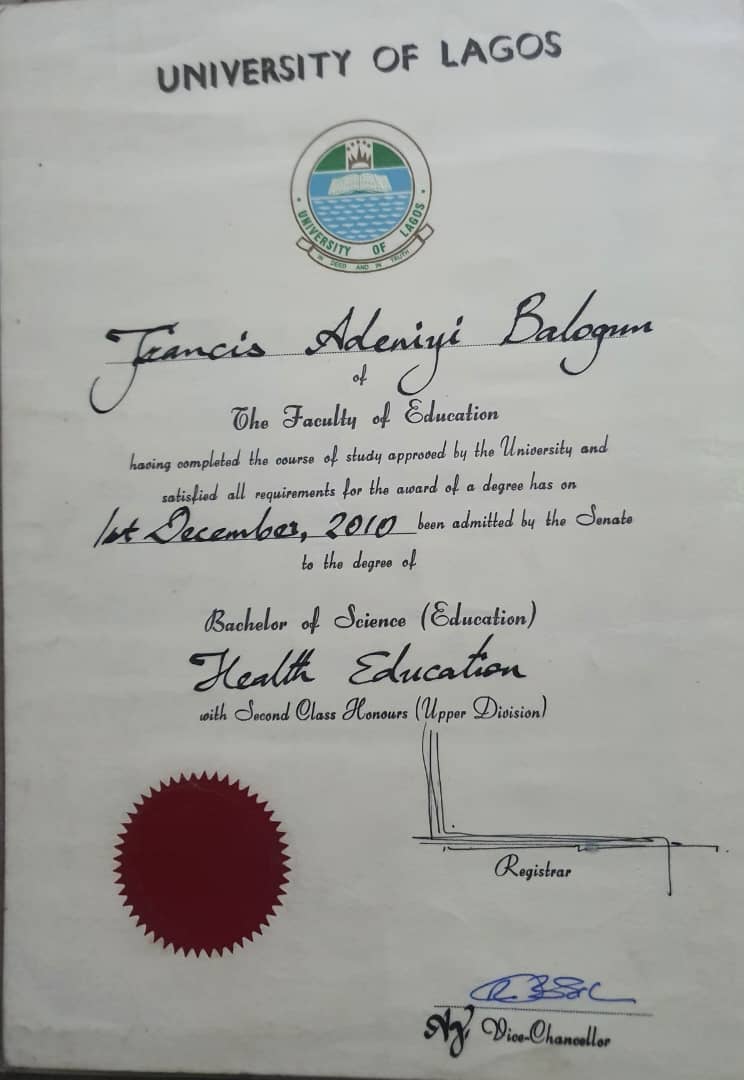 UNIVERSITY OF LAGOS
UNIVERSITY OF LAGOS
IN DEED AND IN TRUTH
Francis Adeniyi Balogun
of
The Faculty of Education
having completed the course of study approved by the University and
satisfied all requirements for the award of a degree has on
1st December, 2010 been admitted by the Senate
to the degree of
Bachelor of Science (Education)
Health Education
with Second Class Honours (Upper Division)
Registrar
Ag. Vice-Chancellor